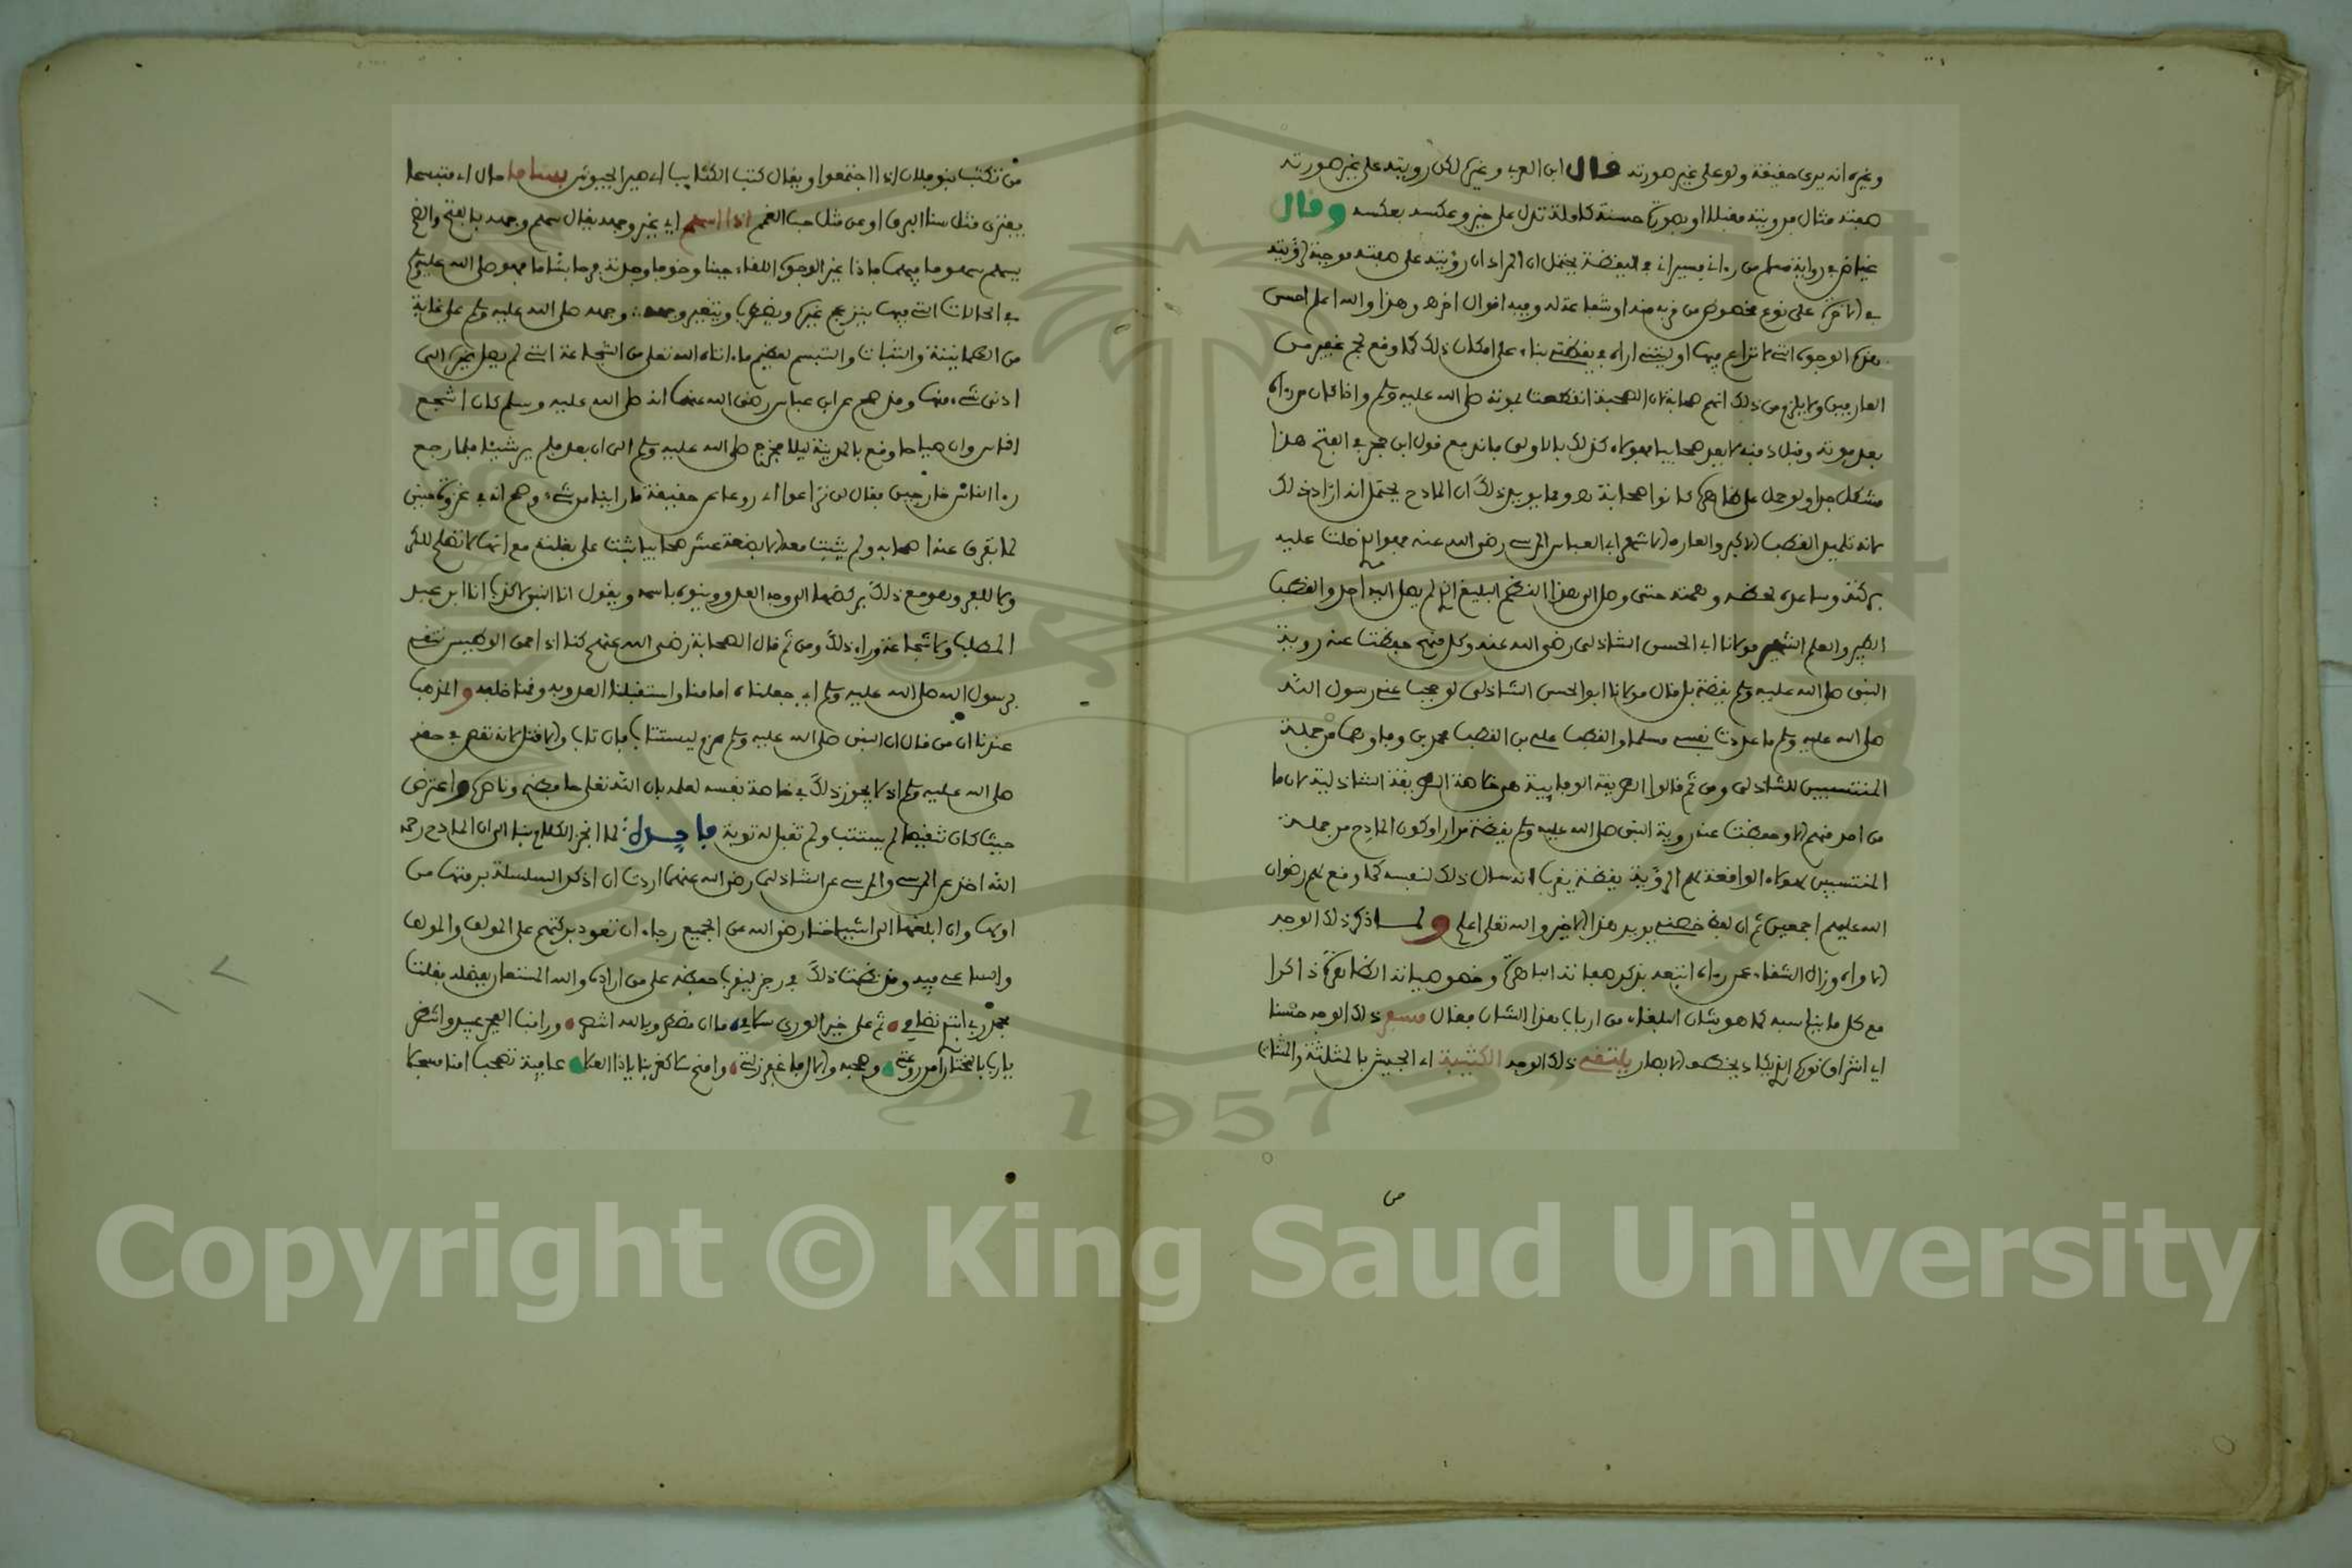 وغيره انه يرى حقيقة ولو على غير صورته قال ابن العربي وغيره لكن رويته على غير صورته
صفته مثال فرويته مقبلا او بصورة حسنة كاملة تدل على خير وعكسه بعكسه وقال
عياض في رواية مسلم من رءاني فسيراني في اليقظة يحتمل ان المراد ان رؤيته على صفته موجبة لرؤيته
في الاخرة على نوع مخصوص من قربه منه او شفاعة له وفيه اقوال اخر هـ وهذا والله اعلم احسن
الوجوه التي لا نزاع فيها او ليتني اراه في يقظتي بناء على امكان ذلك كما وقع لجم غفير من
العارفين ولا يلزم من ذلك انهم صحابة لان الصحبة انقطعت بموته صلى الله عليه وسلم واذا كان من رءاه
بعد موته وقبل دفنه لا يعد صحابيا فهولاء كذلك بالاولى فاندفع قول ابن حجر في الفتح هذا
مشكل جدا ولو حمل على ظاهره لكانوا صحابة هـ ومما يويد ذلك ان المادح يحتمل انه اراد ذلك
لانه تلميذ القطب الاكبر والعارف الاشهر ابي العباس المرسي رضي الله عنه فهو الذي حلت عليه
بركته وساعده لحظه وهمته حتى وصل الى هذا النظم البليغ الذي لم يصل اليه احد والقطب
الكبير والعلم الشهير مولانا ابي الحسن الشاذلي رضي الله عنه وكل منهم حفظت عنه روية
النبي صلى الله عليه وسلم يقظة بل قال مولانا ابو الحسن الشاذلي لو حجب عني رسول الله
صلى الله عليه وسلم ما عددت نفسي مسلما والقطب علي بن القطب محمد بن وفا وهما من جملة
المنتسبين للشاذلي ومن ثم قالوا الطريقة الوفايية هي خاصة الطريقة الشاذلية لان ما
من احد منهم الا وحفظت عنه روية النبي صلى الله عليه وسلم يقظة مرارا وكون المادح من جملة
المنتسبين لهولاء الواقعة لهم الرؤية يقظة يقرب انه سال ذلك لنفسه كما وقع لهم رضوان
الله عليهم اجمعين ثم ان لفظ خصني يويد هذا الاخير والله تعلى اعلم ولما ذكر ذلك الوجه
وزال الشقاء عمن رءاه اتبعه بذكر صفاته الباهرة وخصوصياته الظاهرة ذاكرا
مع كل ما يناسبه كما هو شان البلغاء من ارباب هذا الشان فقال مسفر ذلك الوجه حسنا
اي اشراق نوره الذي يكاد يخطف الابصار يلتقي ذلك الوجه الكتيبة اي الجيش بالمثلثة والمثناة
من تكتب بنو فلان اذا اجتمعوا ويقال كتب الكتايب اي هير الجيوش بساما حال اي متبسما
يفتر عن مثل سنا البرق او عن مثل حب الغمام اذا اسهم اي تغير وجهه يقال سهم وجهه بالفتح والضم
يسهم سهوما فيهما فاذا تغير الوجوه اللقاء جبنا وخوفا وجدته فرحا بشاما فهو صلى الله عليه وسلم
في الحالات التي فيها ينزعج غيره ويضطرب ويتغير وجهه وجهه صلى الله عليه وسلم على غاية
من الطمانينة والثبات والتبسم لعظيم ما ءاتاه الله تعلى من الشجاعة التي لم يصل غيره الى
ادنى شيء منها وقد صح عن ابن عباس رضي الله عنهما انه صلى الله عليه وسلم كان اشجع
الناس وان صياحا وقع بالمدينة ليلا فخرج صلى الله عليه وسلم الى ان بعد فلم ير شيئا فلما رجع
رءا الناس خارجين فقال لن تراعوا اي روعا عن حقيقة ما راينا من شيء وصح انه في غزوة حنين
لما تفرق عنه اصحابه ولم يثبت معه الا بضعة عشر صحابيا ثبت على بغلته مع انها لا تصلح للكر
ولا للفر وهو مع ذلك يركضها الى وجه العدو وينوه باسمه ويقول انا النبي لا كذب انا ابن عبد
المطلب ولا شجاعة وراء ذلك ومن ثم قال الصحابة رضي الله عنهم كنا اذا احمى الوطيس نتقي
برسول الله صلى الله عليه وسلم اي جعلناه امامنا واستقبلنا العدو به وقمنا خلفه والمذهب
عندنا ان من قال ان النبي صلى الله عليه وسلم هزم يستتاب فان تاب والا قتل لانه تنقص في حقه
صلى الله عليه وسلم اذ لا يجوز ذلك في خاصة نفسه لعلمه بان الله تعلى حافظه وناصره واعترض
حيث كان تنقيصا لم يستتب ولم تقبل له توبة فايدة لما انجز الكلام بنا الى ان المادح رحمه
الله اخذ عن المرسي والمرسي عن الشاذلي رضي الله عنهما اردت ان اذكر السلسلة برمتها من
اولها وان ابلغها الى اشياخنا رضي الله عن الجميع رجاء ان تعود بركتهم على المولف والمولف
والساعي فيه وقد نظمت ذلك في رجز ليقرب حفظه على من اراده والله المستعان بفضله فقلت
بحمد ربي ابتدي نظامي ثم على خير الورى سلامي ما ان مضى وبالله اشهر وراقب الفجر عبيد وانتظر
يا رب بالمختار ءامن روعتي وصحبه والال فاغفر زلتي وامنح لكاتبها ياذا العلا عافية تصحب امنا مسجلا
Copyright © King Saud University
1957